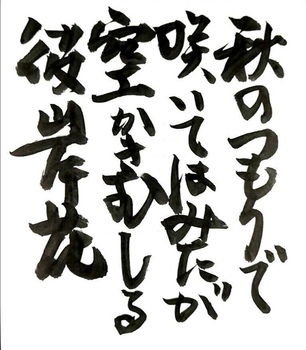 秋のつもりで
咲いてはみたが
空かきむしる
彼岸花